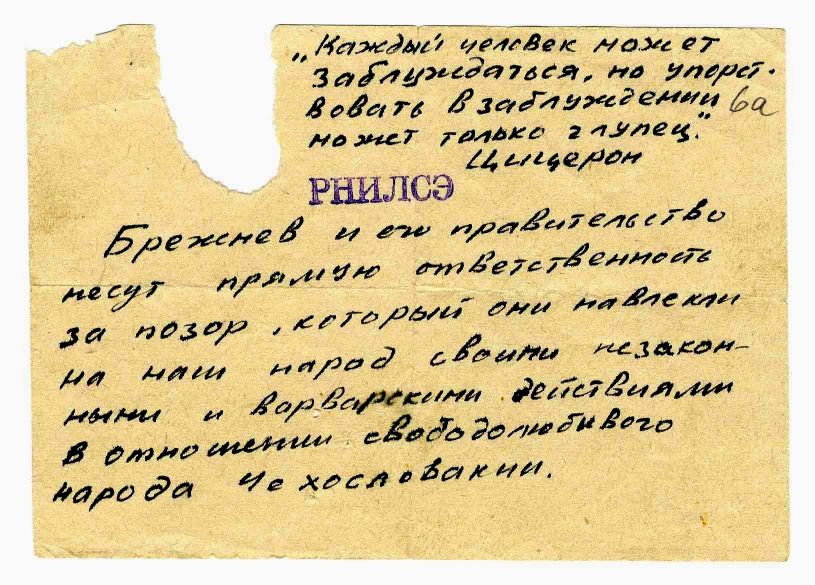 „Каждый человек может
заблуждаться, но упорст-
вовать в заблуждении 6а
может только глупец."
Цицерон
РНИЛСЭ
Брежнев и его правительство
несут прямую ответственность
за позор, который они навлекли
на наш народ своими незакон-
ными и варварскими действиями
в отношении свободолюбивого
народа Чехословакии.